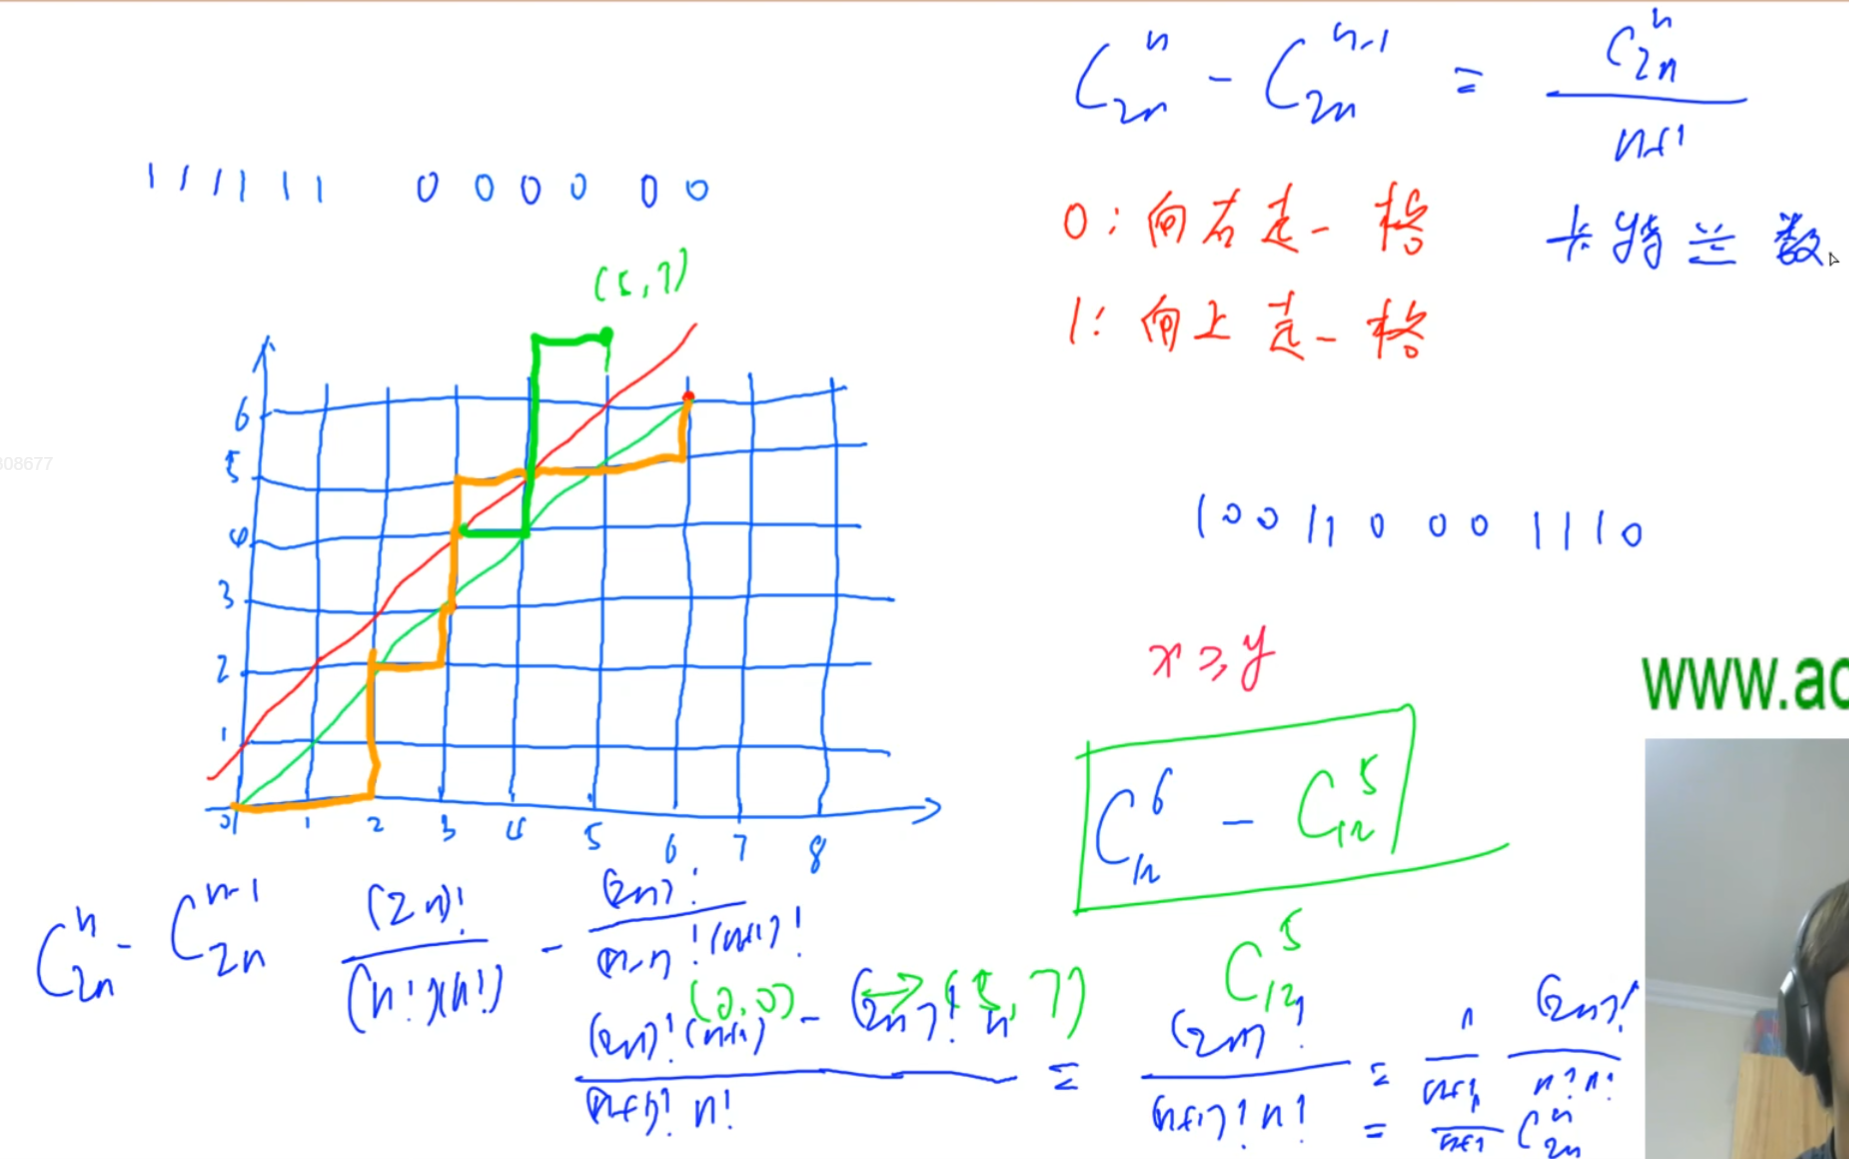 C_{2n}^{n} - C_{2n}^{n-1} = \frac{C_{2n}^{n}}{n+1}
111111 000000
0:向右走一格
卡特兰数
(5,7)
1:向上走一格
6
5
4
3
2
1
0 1 2 3 4 5 6 7 8
308677
100110001110
x≥y
www.ac
C_{12}^{6} - C_{12}^{5}
C_{12}^{5}
(0,0) ↔ (5,7)
C_{2n}^{n} - C_{2n}^{n-1} \frac{(2n)!}{(n!)(n!)} - \frac{(2n)!}{(n-1)!(n+1)!}
\frac{(2n)!(n+1) - (2n)!n}{(n+1)!n!} = \frac{(2n)!}{(n+1)!n!} = \frac{1}{n+1} \frac{(2n)!}{n!n!}
= \frac{1}{n+1} C_{2n}^{n}